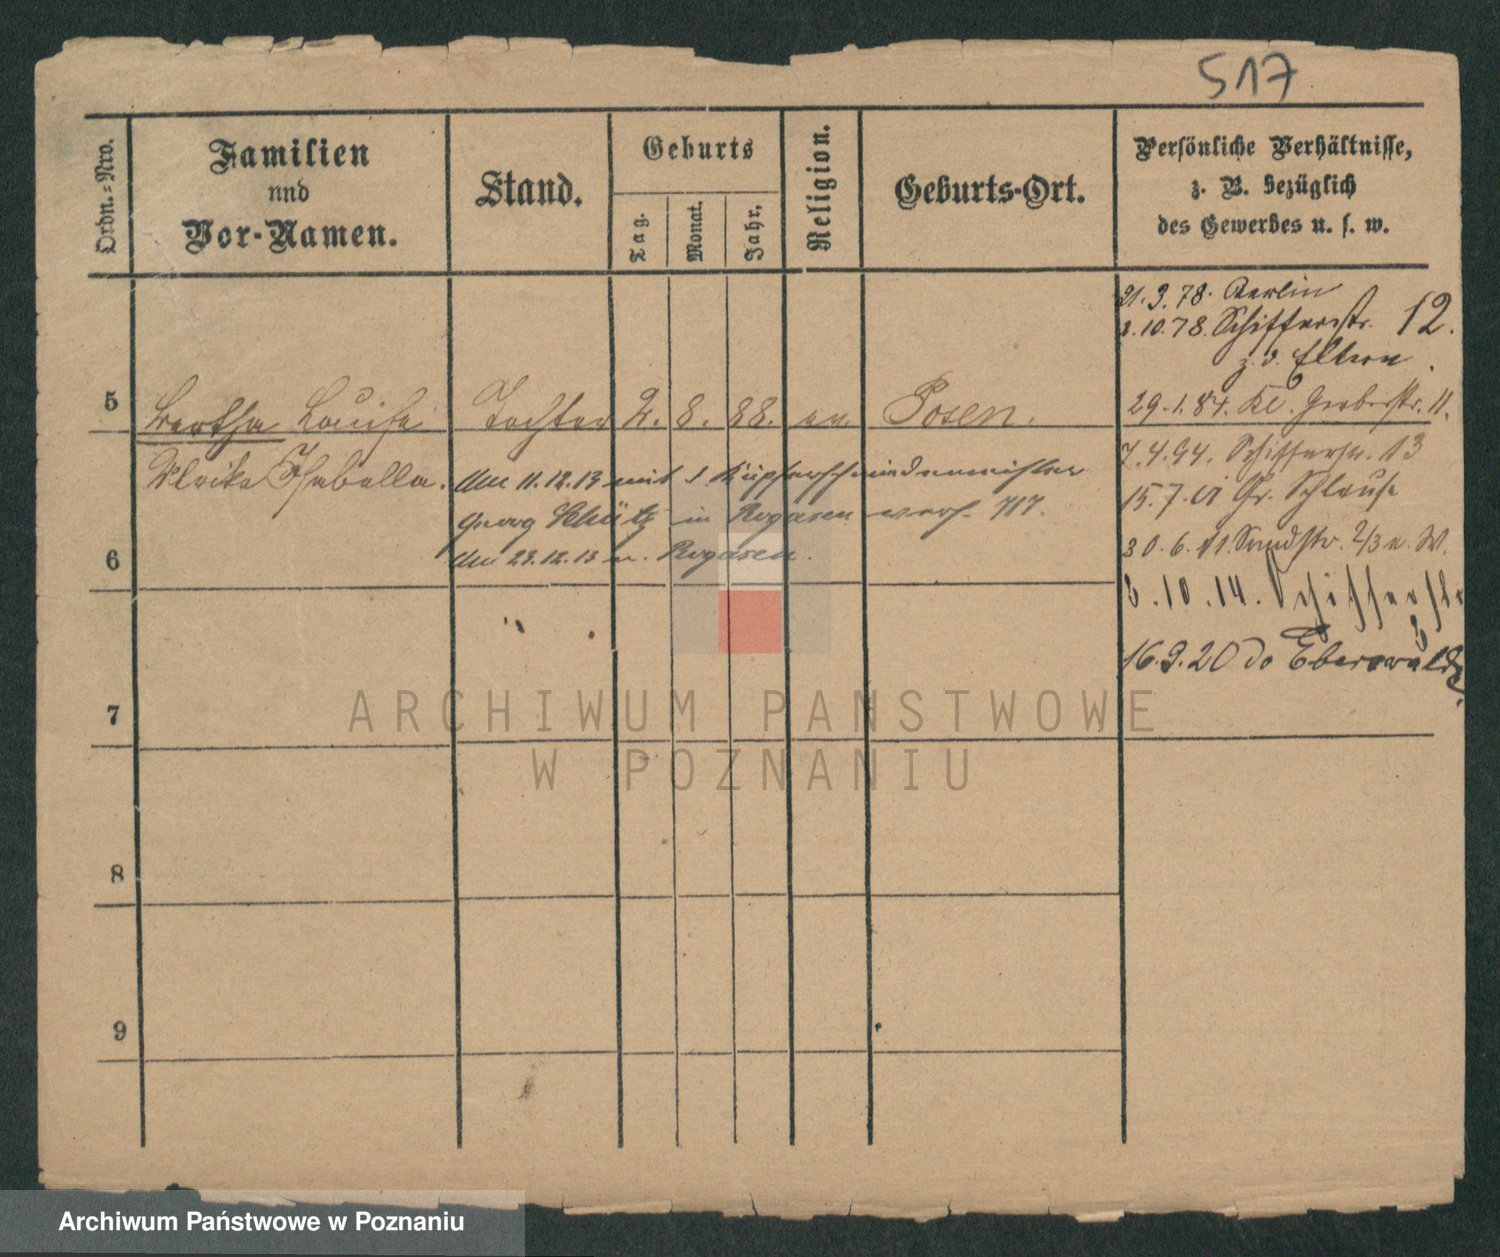 517
Ordn.=Nro.
Familien
und
Vor-Namen.
Stand.
Geburts
Tag.
Monat.
Jahr.
Religion.
Geburts-Ort.
Persönliche Verhältnisse,
z. B. bezüglich
des Gewerbes u. s. w.
21.9.78. Berlin
2.10.78. Schifferstr. 12.
z. d. Eltern.
5
Bertha Louise Tochter 2. 8. 88. ev. Posen.
29.1.84. Kl. Gerberstr. 11.
Ulrike Isabella.
7.4.94. Schifferstr. 13
Am 11.12.13 mit d. Kupferschmiedemeister
15.7.01 Gr. Schleuse
Georg Schütz in Rogasen verh. 717.
6
Am 23.12.13 n. Rogasen.
30.6.11. Sandstr. 2/3 n. W.
3.10.14. Schifferstr
16.9.20 do Eberswalde
7
8
9
ARCHIWUM PAŃSTWOWE
W POZNANIU
Archiwum Państwowe w Poznaniu